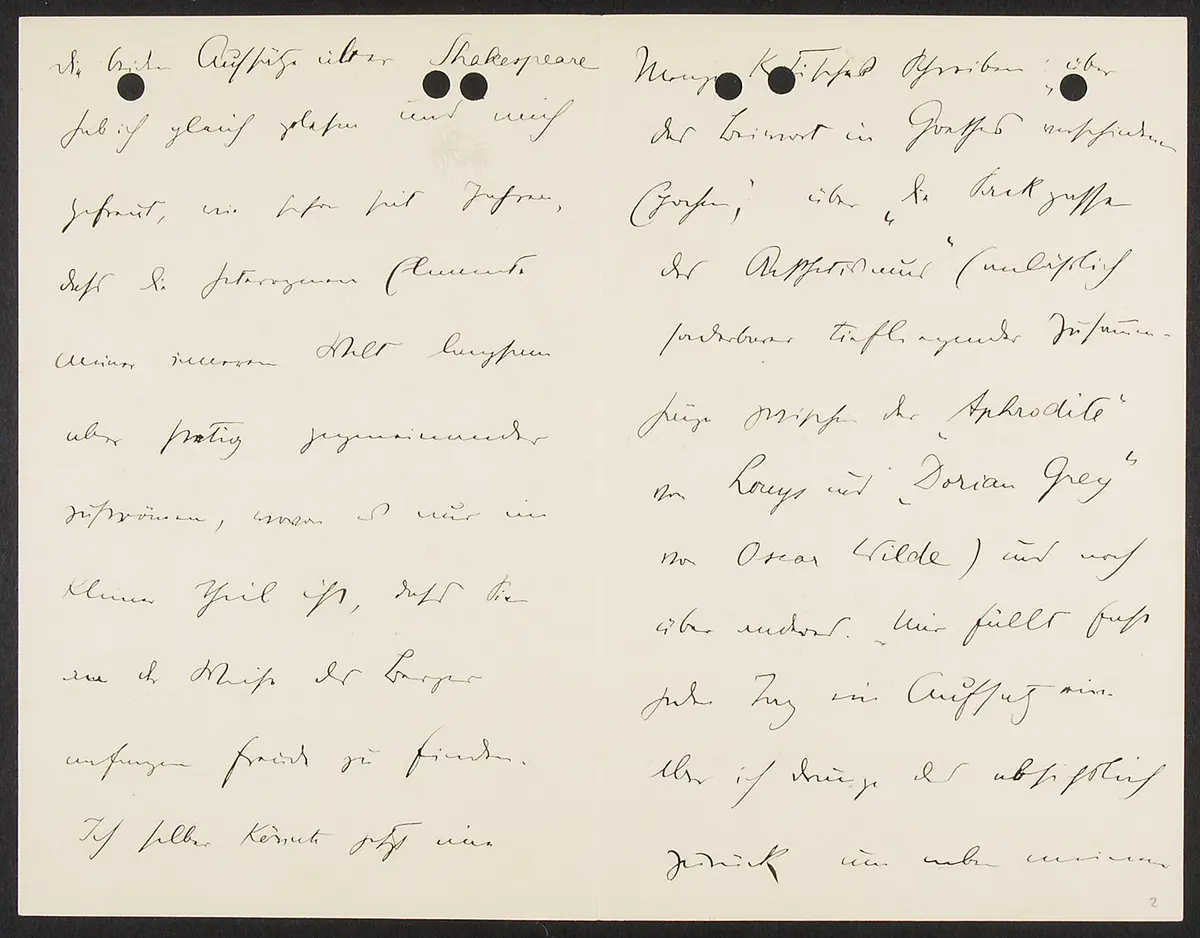 die beiden Aufsätze über Shakespeare
hab ich gleich gelesen und mich
gefreut, wie schon seit Jahren,
dass die heterogenen Elemente
meiner inneren Welt langsam
aber stetig gegeneinander
zuströmen, wovon es nur ein
kleiner Theil ist, dass Sie
an der Weise der Berger
anfangen Freude zu finden.
Ich selber könnte jetzt eine
Menge Kritisches schreiben: „über
das Beiwort in Goethes verschiedenen
Epochen“, über „die Sackgassen
des Aesthetismus“ (anlässlich
sonderbarer tiefliegender Zusammen-
hänge zwischen der „Aphrodite“
von Louys und „Dorian Grey“
von Oscar Wilde) und noch
über anderes. Mir fällt fast
jeden Tag ein Aufsatz ein.
Aber ich dränge das absichtlich
zurück um neben meinem
2